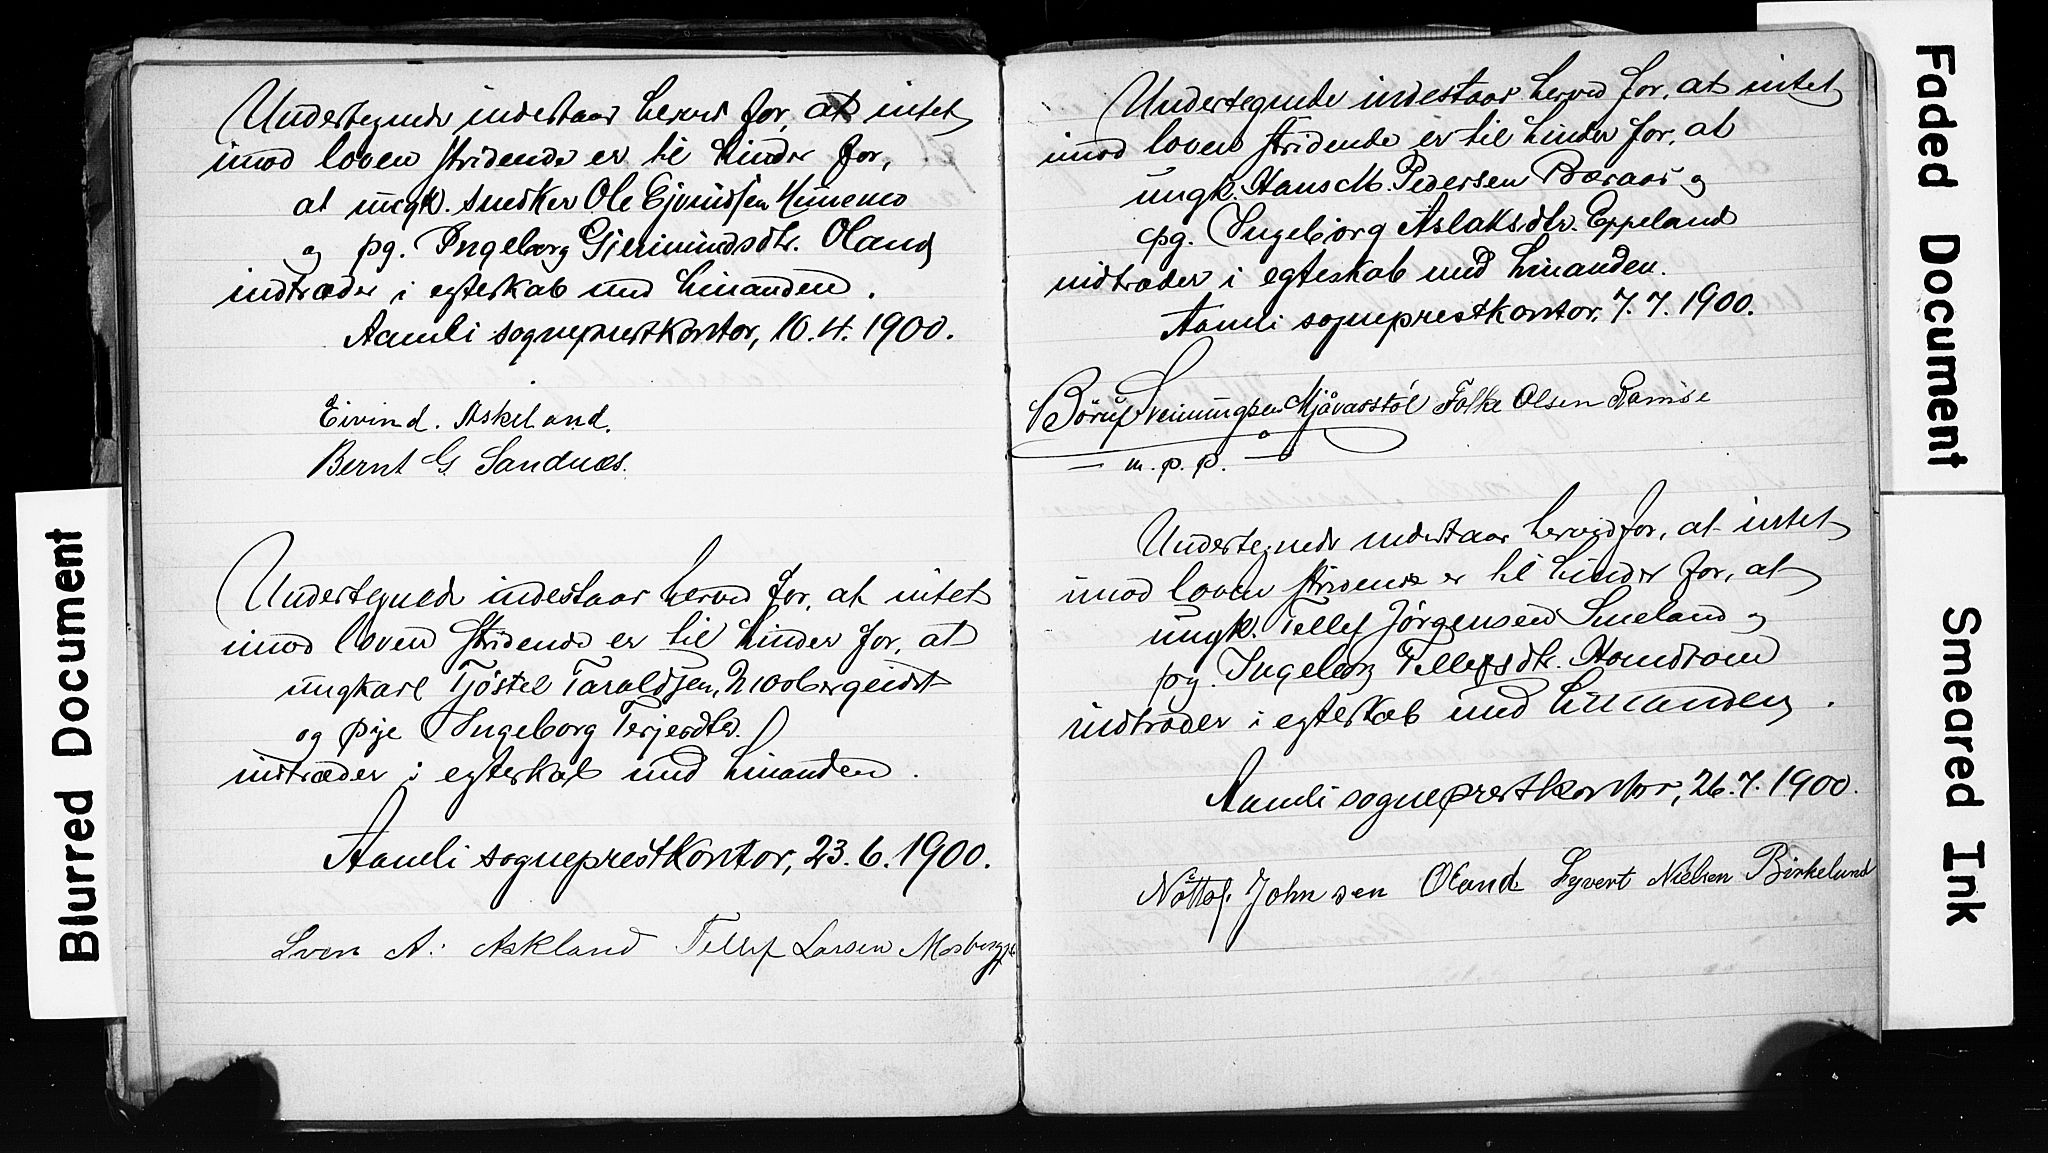 Undertegnede indestaar herved for, at intet
imod loven stridende er til hinder for,
at ungk. snedker Ole Ejvindsen
og pg. Ingeborg Oland
indtræder i egteskab med hinanden.
Aamli sogneprestkontor, 10.4.1900.
Eivind. Askeland.
Bernt G Sandnæs.
Undertegnede indestaar herved for, at intet
imod loven stridende er til hinder for, at
ungkarl Tjöstel Taraldsen,
og pige Ingeborg Terjesdtr.
indtræder i egteskab med hinanden.
Aamli sogneprestkontor, 23.6.1900.
Sven A: Askland Tellef Larsen
Undertegnede indestaar herved for, at intet
imod loven stridende er til hinder for, at
ungk. Hans M. Pedersen og
pg. Ingeborg Aslaksdtr. Eppeland
indtræder i egteskab med hinanden.
Aamli sogneprestkontor, 7.7.1900.
Mjåvasstöl Folke Olsen Ramse
— m. p. p. —
Undertegnede indestaar herved for, at intet
imod loven stridende er til hinder for, at
ungk. Tellef Jørgensen Smeland og
pg. Ingeborg Tellefsdtr.
indtræder i egteskab med hinanden.
Aamli sogneprestkontor, 26.7.1900.
Nottof. Johnsen Oland Syvert Nielsen Birkelund
Blurred Document
Faded Document
Smeared Ink